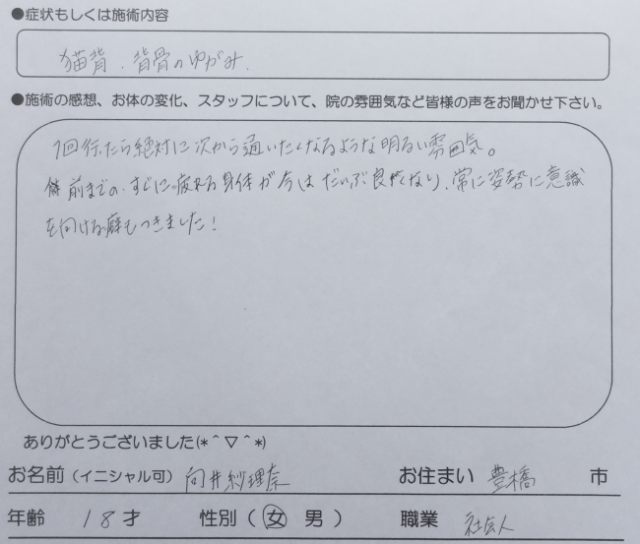 ●症状もしくは施術内容
猫背、背骨のゆがみ.
●施術の感想、お体の変化、スタッフについて、院の雰囲気など皆様の声をお聞かせ下さい。
1回行ったら絶対に次から通いたくなるような明るい雰囲気。
前までの、すぐに疲れる身体が今はだいぶ良くなり、常に姿勢に意識
を向ける癖もつきました!
ありがとうございました(*^▽^*)
お名前(イニシャル可) 向井紗理奈 お住まい 豊橋 市
年齢 18才 性別(女 男) 職業 社会人